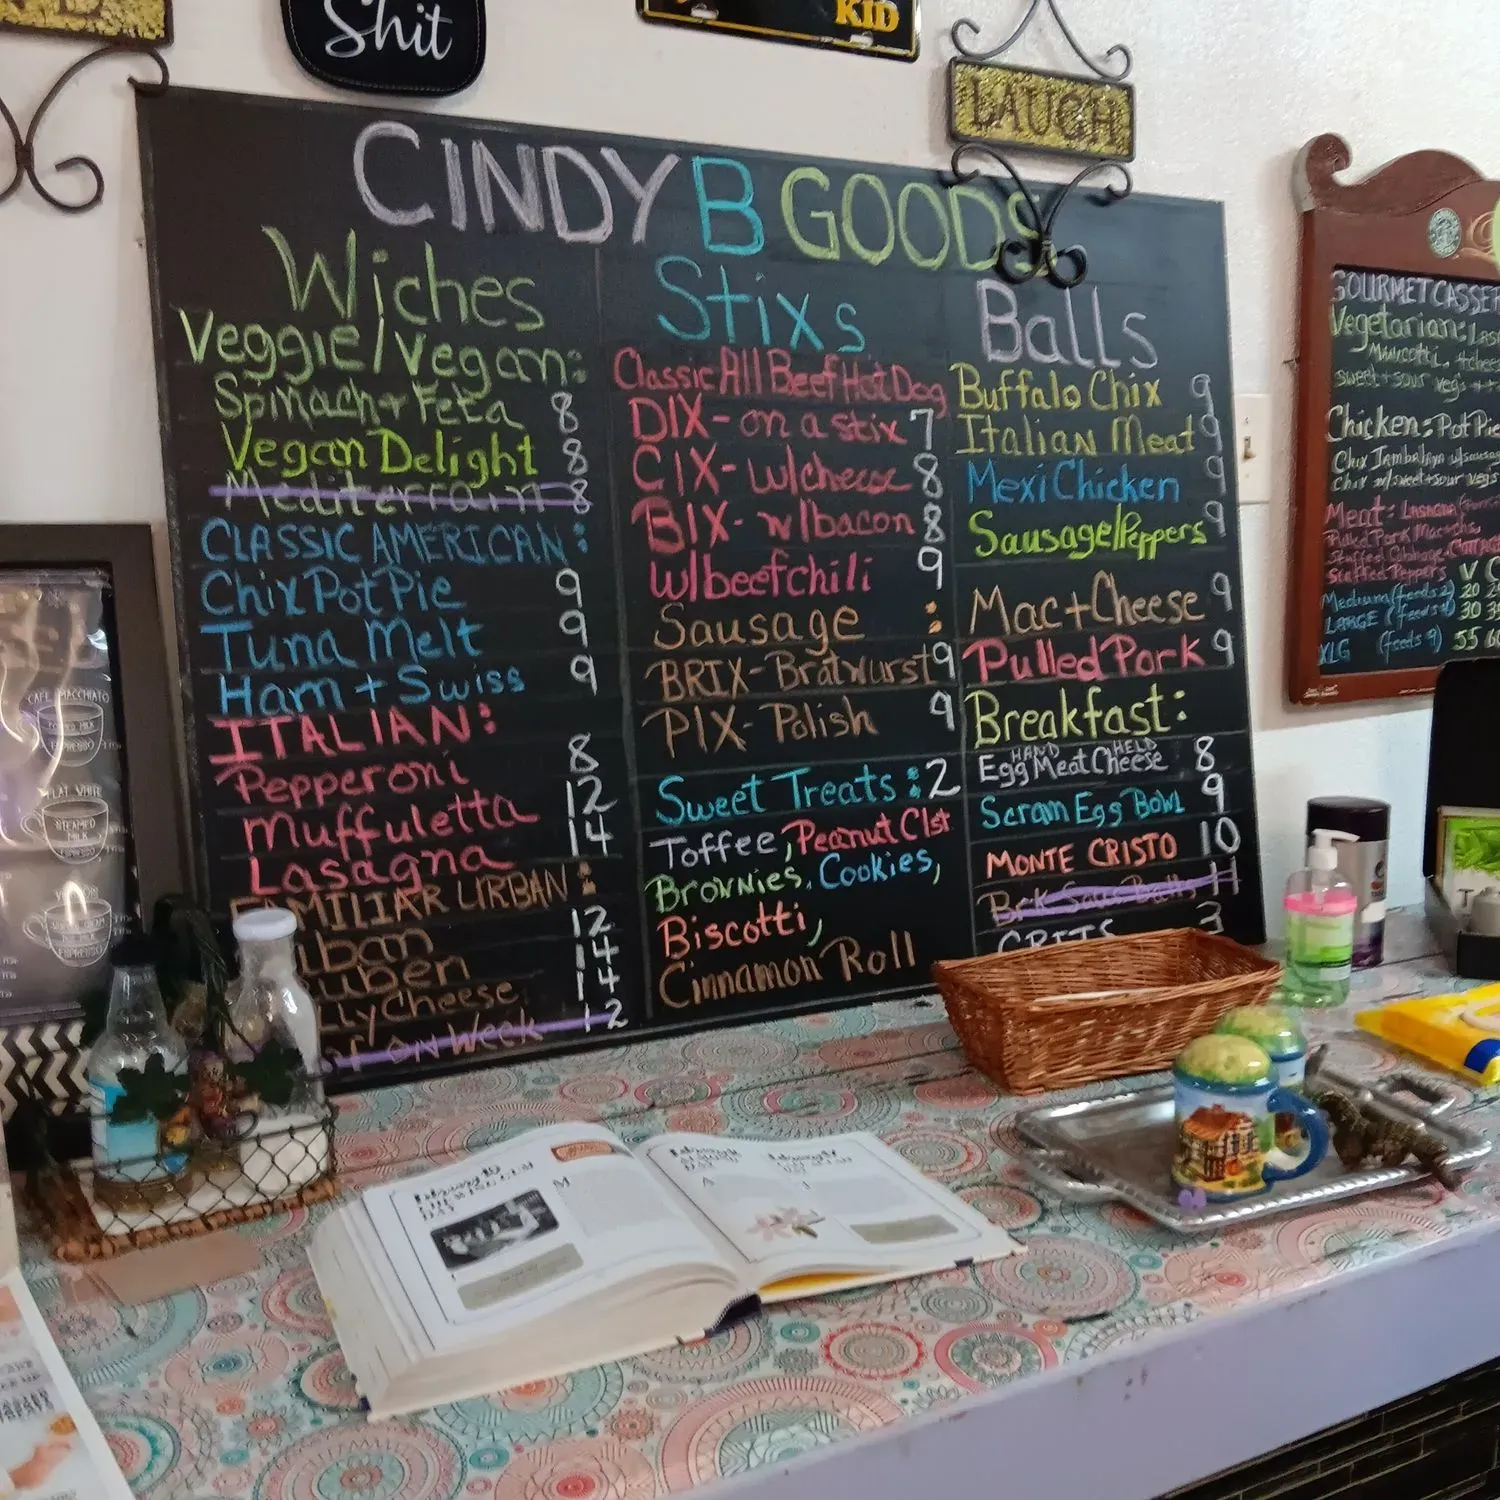 Shit
KID
LAUGH
CINDY B GOODS
Wiches
Veggie/Vegan:
Spinach + Feta 8
Vegan Delight 8
Mediterrain 8
CLASSIC AMERICAN:
Chix Pot Pie 9
Tuna Melt 9
Ham + Swiss 9
ITALIAN:
Pepperoni 8
Muffuletta 12
Lasagna 14
FAMILIAR URBAN:
uban 12
uben 14
llyCheese 14
on Week 12
Stixs
Classic All Beef Hot Dog
DIX- on a stix 7
CIX- w/cheese 8
BIX- w/bacon 8
w/beef chili 9
Sausage :
BRIX-Bratwurst 9
PIX- Polish 9
Sweet Treats : 2
Toffee, Peanut Clst
Brownies, Cookies,
Biscotti,
Cinnamon Roll
Balls
Buffalo Chix 9
Italian Meat 9
Mexi Chicken 9
Sausage/Peppers 9
Mac + Cheese 9
Pulled Pork 9
Breakfast:
HAND HELD
Egg Meat Cheese 8
Scram Egg Bowl 9
MONTE CRISTO 10
Brk Sas Balls 11
GRITS 3
GOURMET CASSER
Vegetarian: Las
sweet + sour veg
Chicken: Pot Pie
Chix Jambalaya w/sausag
Chix w/sweet+sour vegs
Meat: Lasagna
Pulled Pork Mac+chs,
Stuffed Cabbage
Stuffed Peppers V C
Medium (feeds 2) 20 2
LARGE (feeds 30 3
XLG (feeds 9) 55 60
CAFE MACCHIATO
ESPRESSO
FLAT WHITE
STEAMED
MILK
ESPRESSO